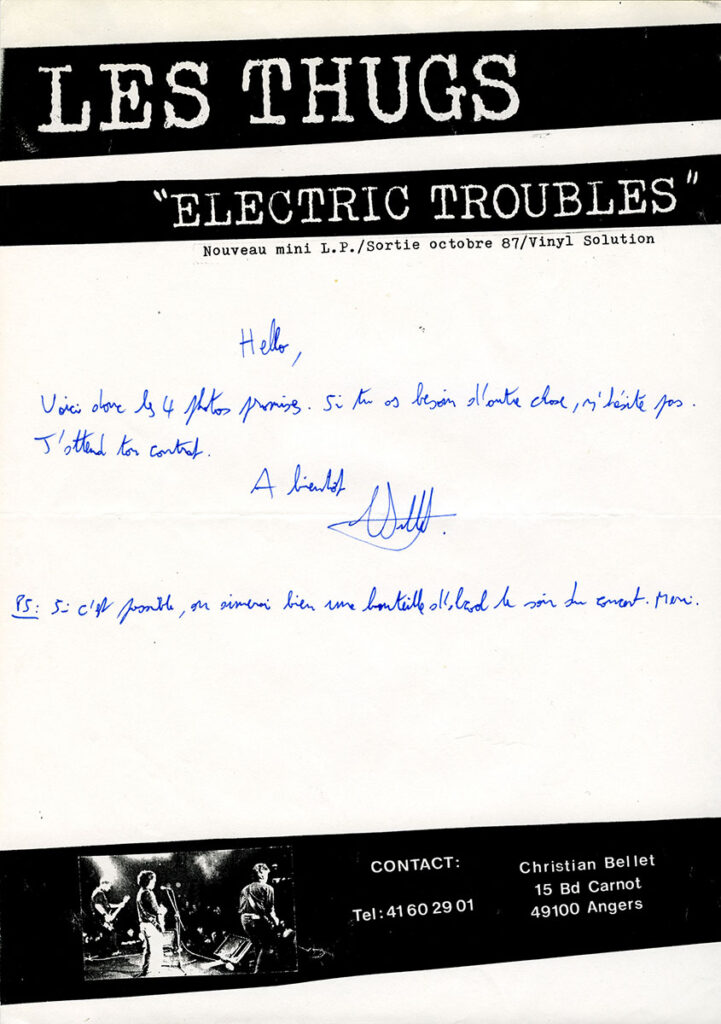 LES THUGS
"ELECTRIC TROUBLES"
Nouveau mini L.P./Sortie octobre 87/Vinyl Solution
Hello,
Voici donc les 4 photos promises. Si tu as besoin d'autre chose, n'hésite pas.
J'attend ton contrat.
A bientôt
PS: Si c'est possible, on aimerai bien une bouteille d'alcool le soir du concert. Merci.
CONTACT:
Tel: 41 60 29 01
Christian Bellet
15 Bd Carnot
49100 Angers